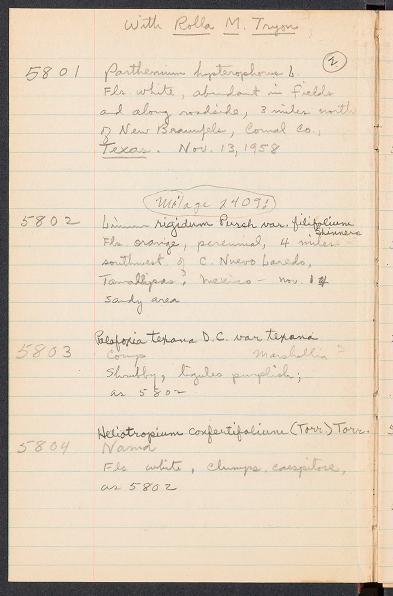 With Rolla M. Tryon
2
5801 Parthenium hysterophorus L.
Fls. white, abundant in fields
and along roadside, 3 miles north
of New Braunfels, Comal Co.,
Texas. Nov. 13, 1958
Milage 2409!
5802 Linum rigidum Pursh var. filifolium
Shinners
Fls. orange, perennial, 4 miles
southwest of C. Nuevo Laredo,
Tamallipas? Mexico - Nov. 14
Sandy area
Palafoxia texana D.C. var texana
5803 Comp Marshallia?
Shrubby, ligules purplish;
as 5802
Heliotropium confertifolium (Torr.) Torr.
5804 Nama
Fls white, clumps caespitose,
as 5802